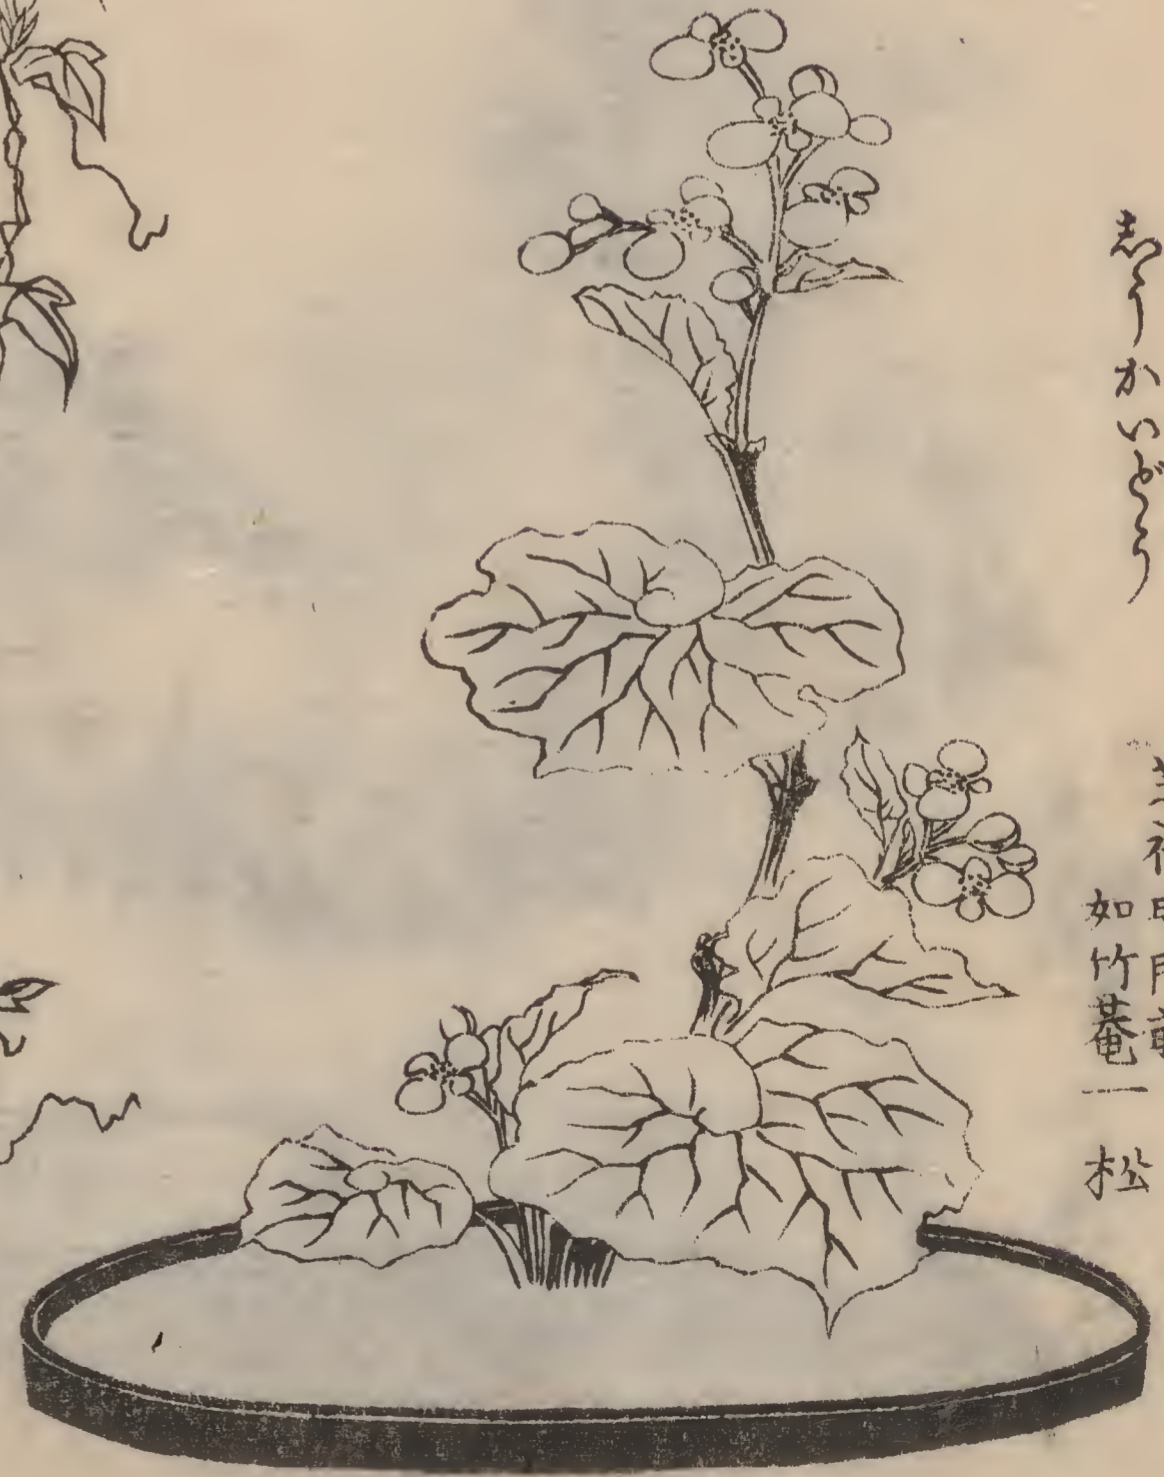 志うかいどう
如竹菴一松